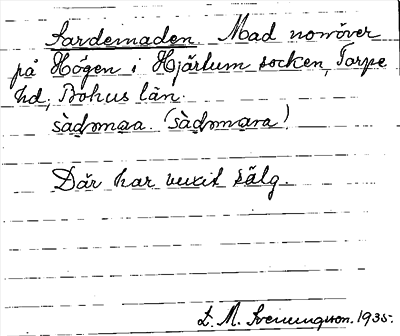 Sardemaden. Mad norröver
på Högen i Hjärtum socken, Torpe
hd, Bohus län.
sàdmaa. (sàdmara)
Där har vuxit sälg.
E. M. Svenungsson. 1935.